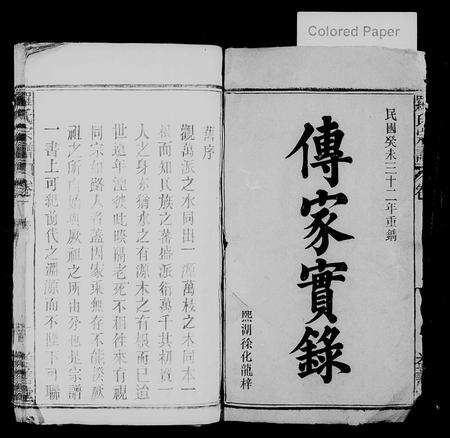 Colored Paper
民國癸未三十二年重鐫
傳家實錄
熙湖徐化龍梓
舊序
觀萬派之水同出一源萬枝之木同本一
根而知氏族之蕃派衍萬千其初實一
人之身亦猶水之有源木之有根而已迨
世遠年湮彼此睽隔老死不相往來有視
同宗如路人者蓋因家乘無存不能溯厥
祖之所由始與厥祖之所由分也是宗譜
一書上可紀前代之淵源而不墜下可聯